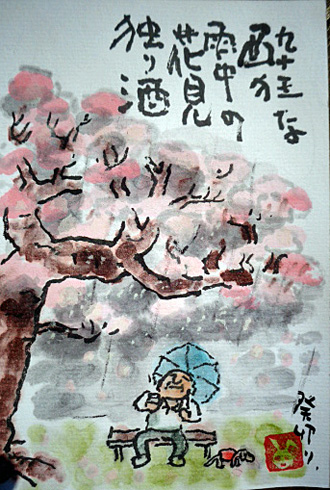 酔狂な
雨中の
花見
独り酒
癸卯